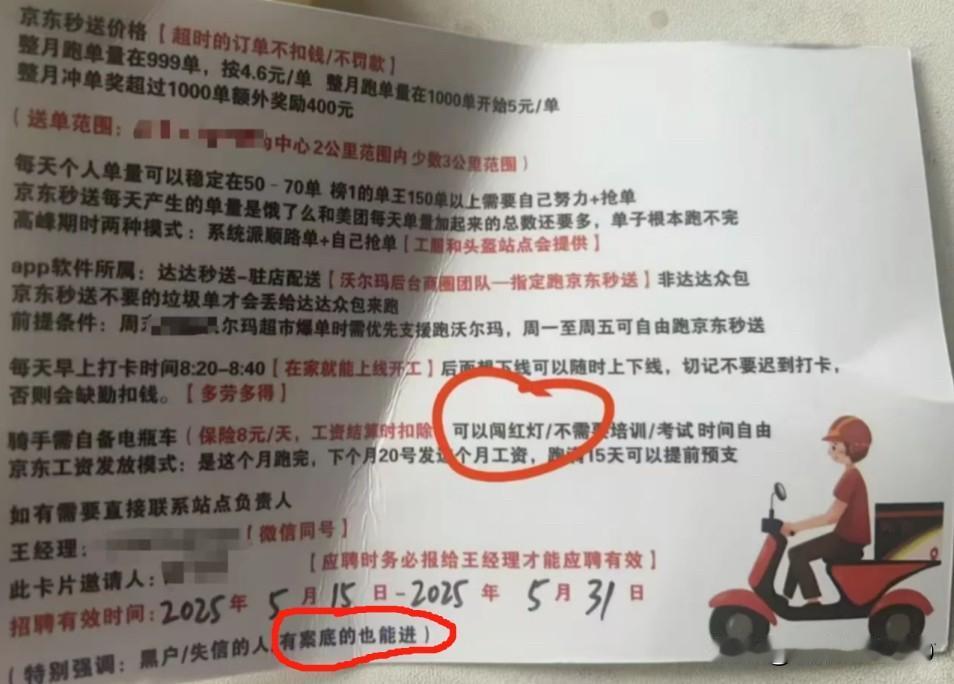 京东秒送价格【超时的订单不扣钱/不罚款】
整月跑单量在999单，按4.6元/单 整月跑单量在1000单开始5元/单
整月冲单奖超过1000单额外奖励400元
（送单范围：中心2公里范围内 少数3公里范围）
每天个人单量可以稳定在50-70单 榜1的单王150单以上需要自己努力+抢单
京东秒送每天产生的单量是饿了么和美团每天单量加起来的总数还要多，单子根本跑不完
高峰期时两种模式：系统派顺路单+自己抢单【工服和头盔站点会提供】
app软件所属：达达秒送-驻店配送【沃尔玛后台商圈团队—指定跑京东秒送】非达达众包
京东秒送不要的垃圾单才会丢给达达众包来跑
前提条件：周尔玛超市爆单时需优先支援跑沃尔玛，周一至周五可自由跑京东秒送
每天早上打卡时间8:20-8:40【在家就能上线开工】后面想下线可以随时上下线，切记不要迟到打卡，
否则会缺勤扣钱。【多劳多得】
骑手需自备电瓶车（保险8元/天，工资结算时扣除 可以闯红灯/不需要培训/考试 时间自由
京东工资发放模式：是这个月跑完，下个月20号发这个月工资，跑满15天可以提前预支
如有需要直接联系站点负责人
王经理：【微信同号】
【应聘时务必报给王经理才能应聘有效】
此卡片邀请人：
招聘有效时间：2025年5月15日-2025年5月31日
（特别强调：黑户/失信的人 有案底的也能进）